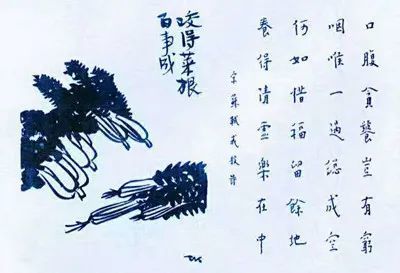 口腹貪饕豈有窮
咽喉一過總成空
何如惜福留餘地
養得清虛樂在中
宋蘇軾戒殺詩
咬得菜根
百事成
TK